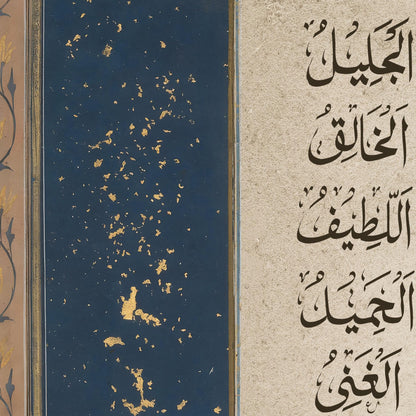 الْجَلِيلُ
الْخَالِقُ
اللَّطِيفُ
الْحَمِيدُ
الْغَنِيُّ